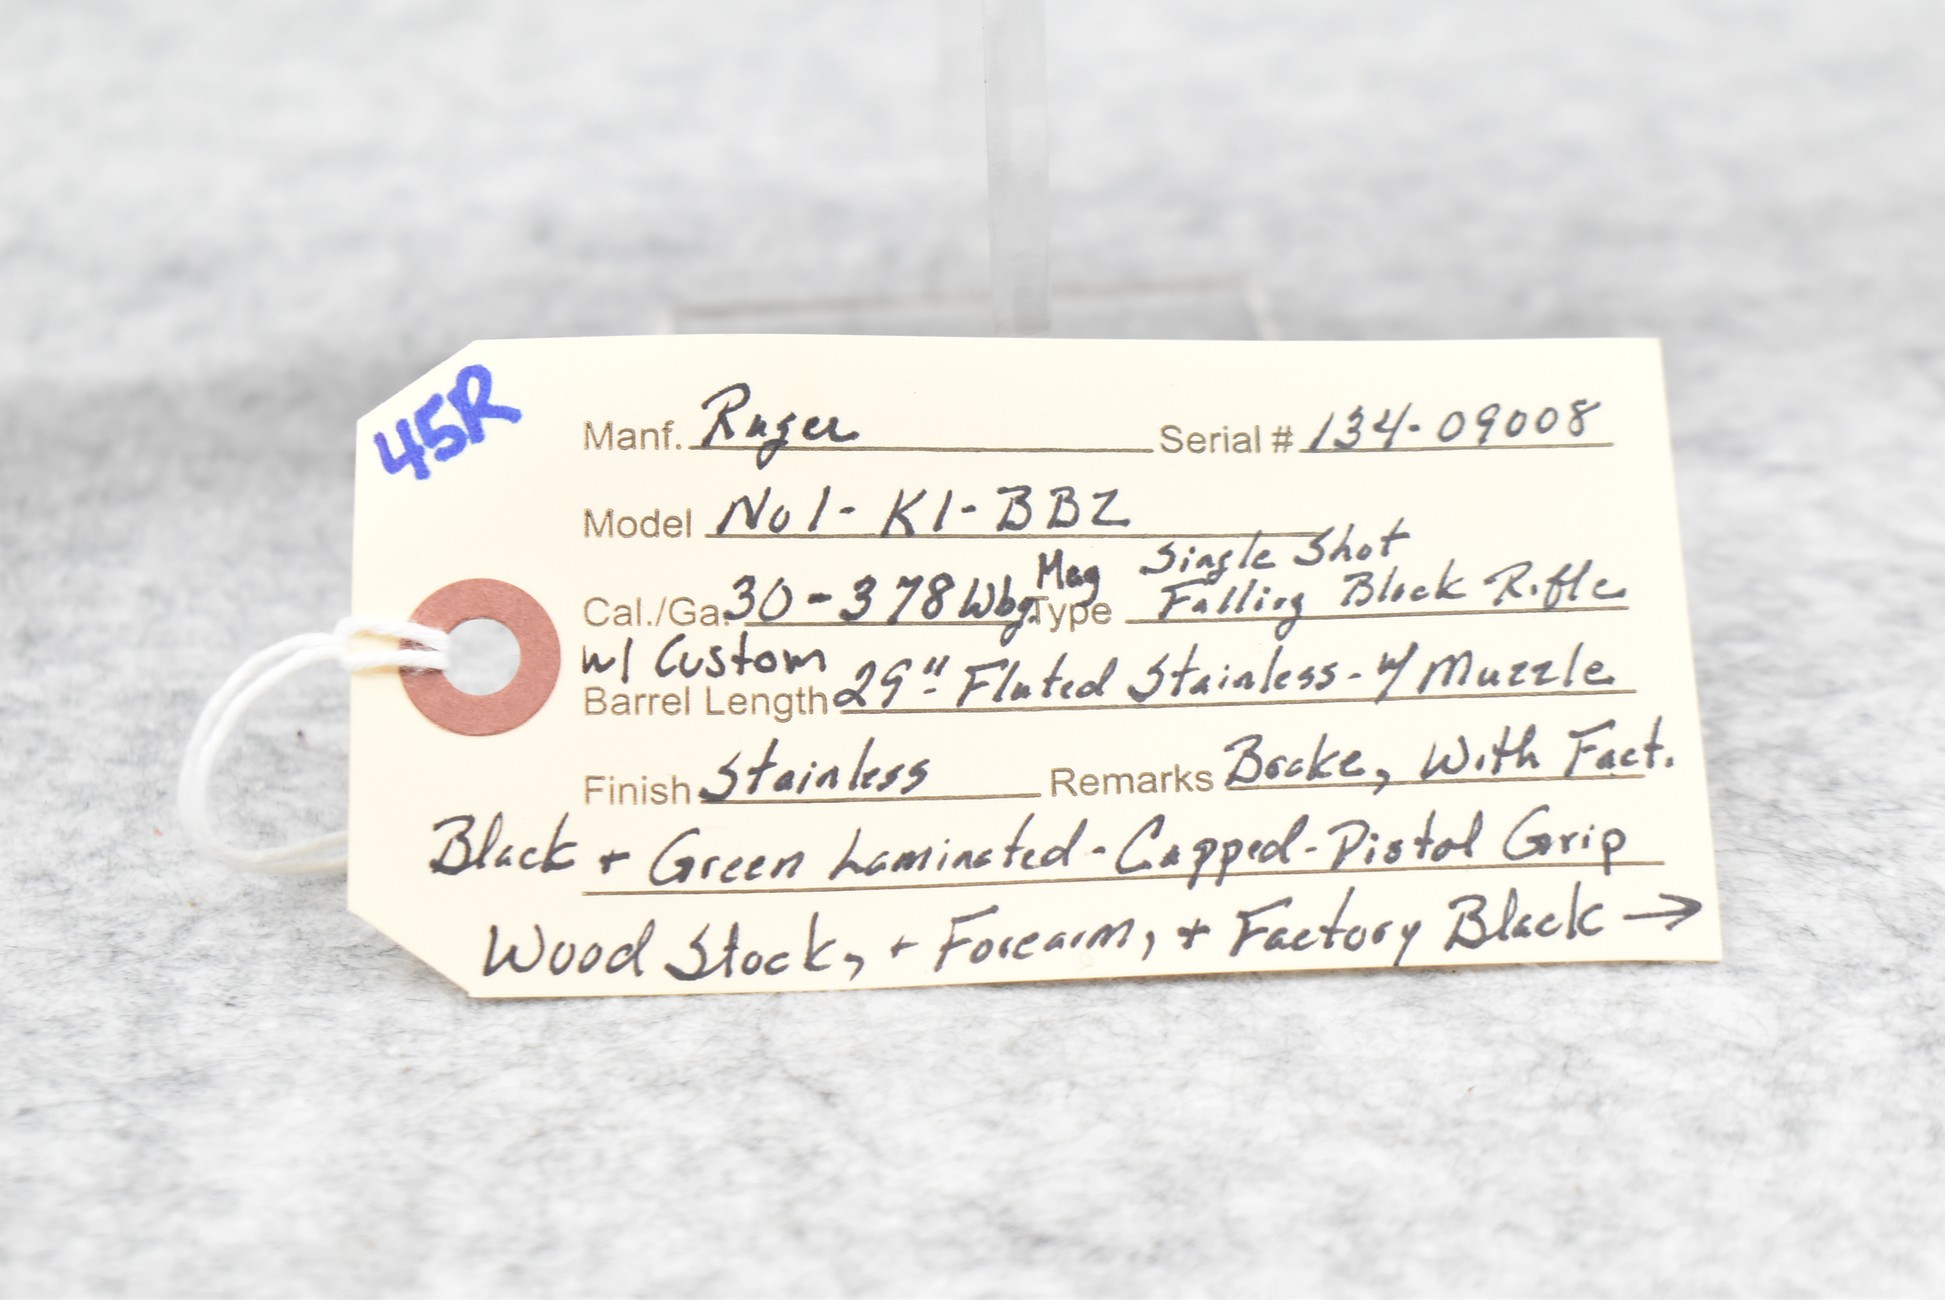 45R
Manf. Ruger Serial # 134-09008
Model No1-K1-BBZ
Cal./Ga. 30-378 Wby. Mag Type Single Shot Falling Block Rifle
w/ Custom
Barrel Length 29" Fluted Stainless-w/ Muzzle
Finish Stainless Remarks Brake, With Fact.
Black + Green Laminated-Capped-Pistol Grip
Wood Stock, + Forearm, + Factory Black →